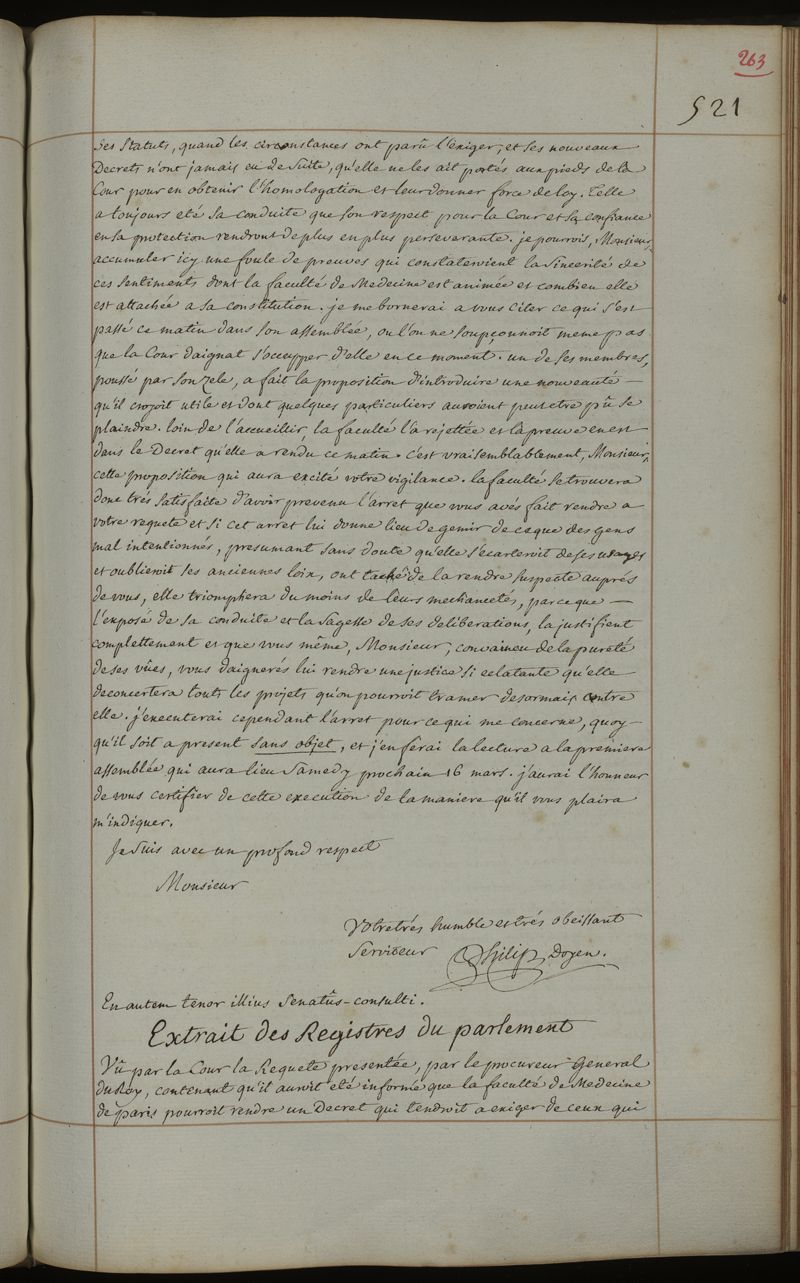 263
521
ses Statuts, quand les circonstances ont parû l'exiger, et ses nouveaux
Decrets n'ont jamais eu de suite, qu'elle ne les ait portés aux pieds de la
Cour pour en obtenir l'homologation et leur donner force de loy. Telle
a toujours eté sa conduite que son respect pour la Cour et sa confiance
en sa protection rendront de plus en plus perseverante. je pourrois, Monsieur,
accumuler icy une foule de preuves qui constateroient la sincerité de
ces sentiments dont la faculté de Medecine est animée et combien elle
est attachée a sa constitution. je me bornerai a vous citer ce qui s'est
passé ce matin dans son assemblée, ou l'on ne soupçonnoit meme pas
que la Cour daignat s'occupper d'elle en ce moment. un de ses membres,
poussé par son zele, a fait la proposition d'introduire une nouveauté —
qu'il croyoit utile et dont quelques particuliers auroient peut etre pû se
plaindre. loin de l'accueillir, la faculté l'a rejettée et la preuve en est
dans le Decret qu'elle a rendu ce matin. c'est vraisemblablement, Monsieur,
cette proposition qui aura excité votre vigilance. la faculté se trouvera
donc trés satisfaite d'avoir prevenu l'arret que vous avés fait rendre a
votre requete et si cet arret lui donne lieu de gemir de ce que des gens
mal intentionnés, presumant sans doute qu'elle s'ecarteroit de ses usages
et oublieroit ses anciennes loix, ont taché de la rendre suspecte auprés
de vous, elle triomphera du moins de leurs mechancetés, parceque —
l'exposé de sa conduite et la sagesse de ses deliberations, la justifient
complettement et que vous même, Monsieur, convaincu de la pureté
de ses vûes, vous daignerés lui rendre une justice si eclatante qu'elle
deconcertera touts les projets qu'on pourroit tramer desormais contre
elle. j'executerai cependant l'arret pour ce qui me concerne, quoy-
qu'il soit a present sans objet, et j'en ferai la lecture a la premiere
assemblée qui aura lieu Samedy prochain 16 mars. j'aurai l'honneur
de vous certifier de cette execution de la maniere qu'il vous plaira
m'indiquer.
Je suis avec un profond respect
Monsieur
Votre trés humble et trés obeissant
Serviteur Philip, Doyen.
En autem tenor illius Senatûs-consulti.
Extrait des Registres du parlement
Vû par la Cour la Requete presentée, par le procureur General
du Roy, contenant qu'il auroit eté informé que la faculté de Medecine
de paris pourroit rendre un Decret qui tendroit a exiger de ceux qui